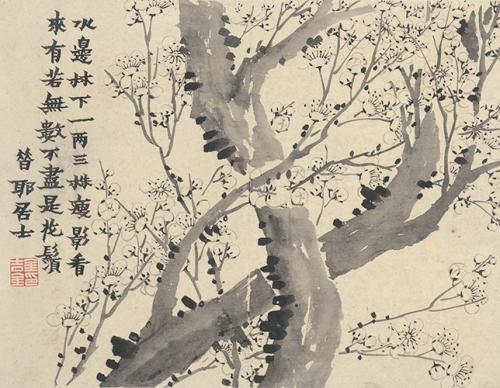 水邊林下一兩三株瘦影看
來有若無數不盡是花鬚
昔耶居士